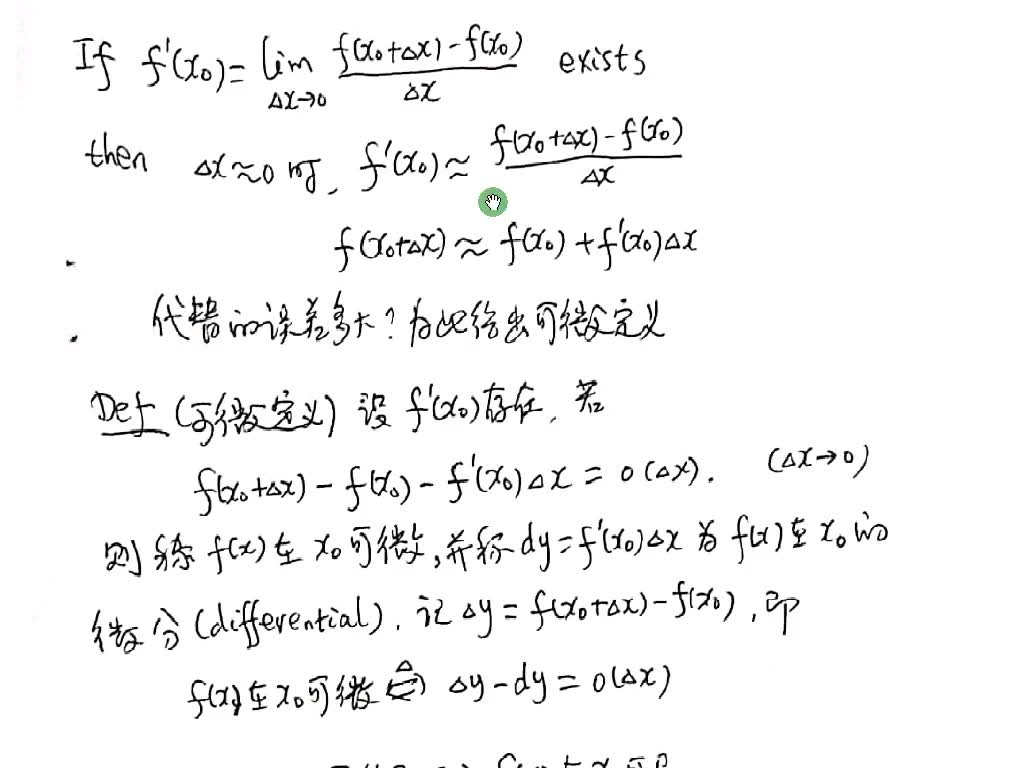 If f'(x₀) = lim_{Δx→0} \frac{f(x₀+Δx) - f(x₀)}{Δx} exists
then Δx≈0 时, f'(x₀) ≈ \frac{f(x₀+Δx) - f(x₀)}{Δx}
f(x₀+Δx) ≈ f(x₀) + f'(x₀)Δx
代替的误差多大?为此给出可微定义
Def (可微定义) 设 f'(x₀)存在, 若
f(x₀+Δx) - f(x₀) - f'(x₀)Δx = o(Δx). (Δx→0)
则称 f(x) 在 x₀ 可微, 并称 dy = f'(x₀)Δx 为 f(x) 在 x₀ 的
微分 (differential). 记 Δy = f(x₀+Δx) - f(x₀), 即
f(x) 在 x₀ 可微 \overset{Δ}{⟺} Δy - dy = o(Δx)